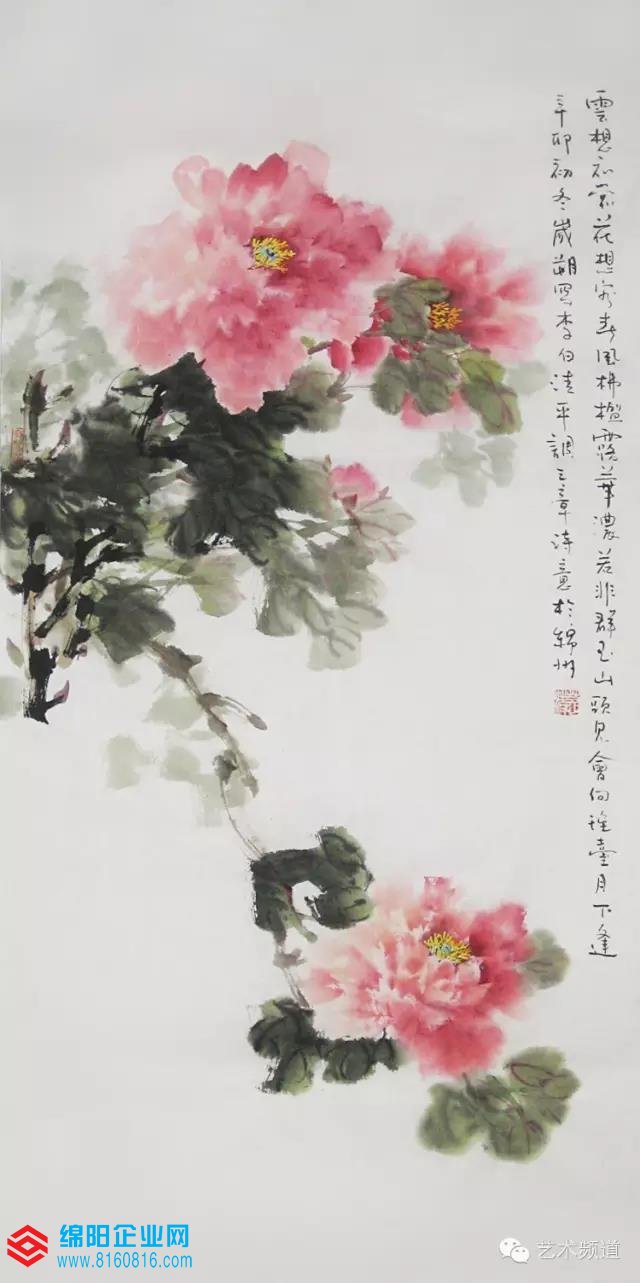 雲想衣裳花想容春風拂檻露華濃若非群玉山頭見會向瑤臺月下逢
辛卯初冬歲朔寫李白清平調三章詩意於綿州
绵阳企业网
www.8160816.com
艺术频道